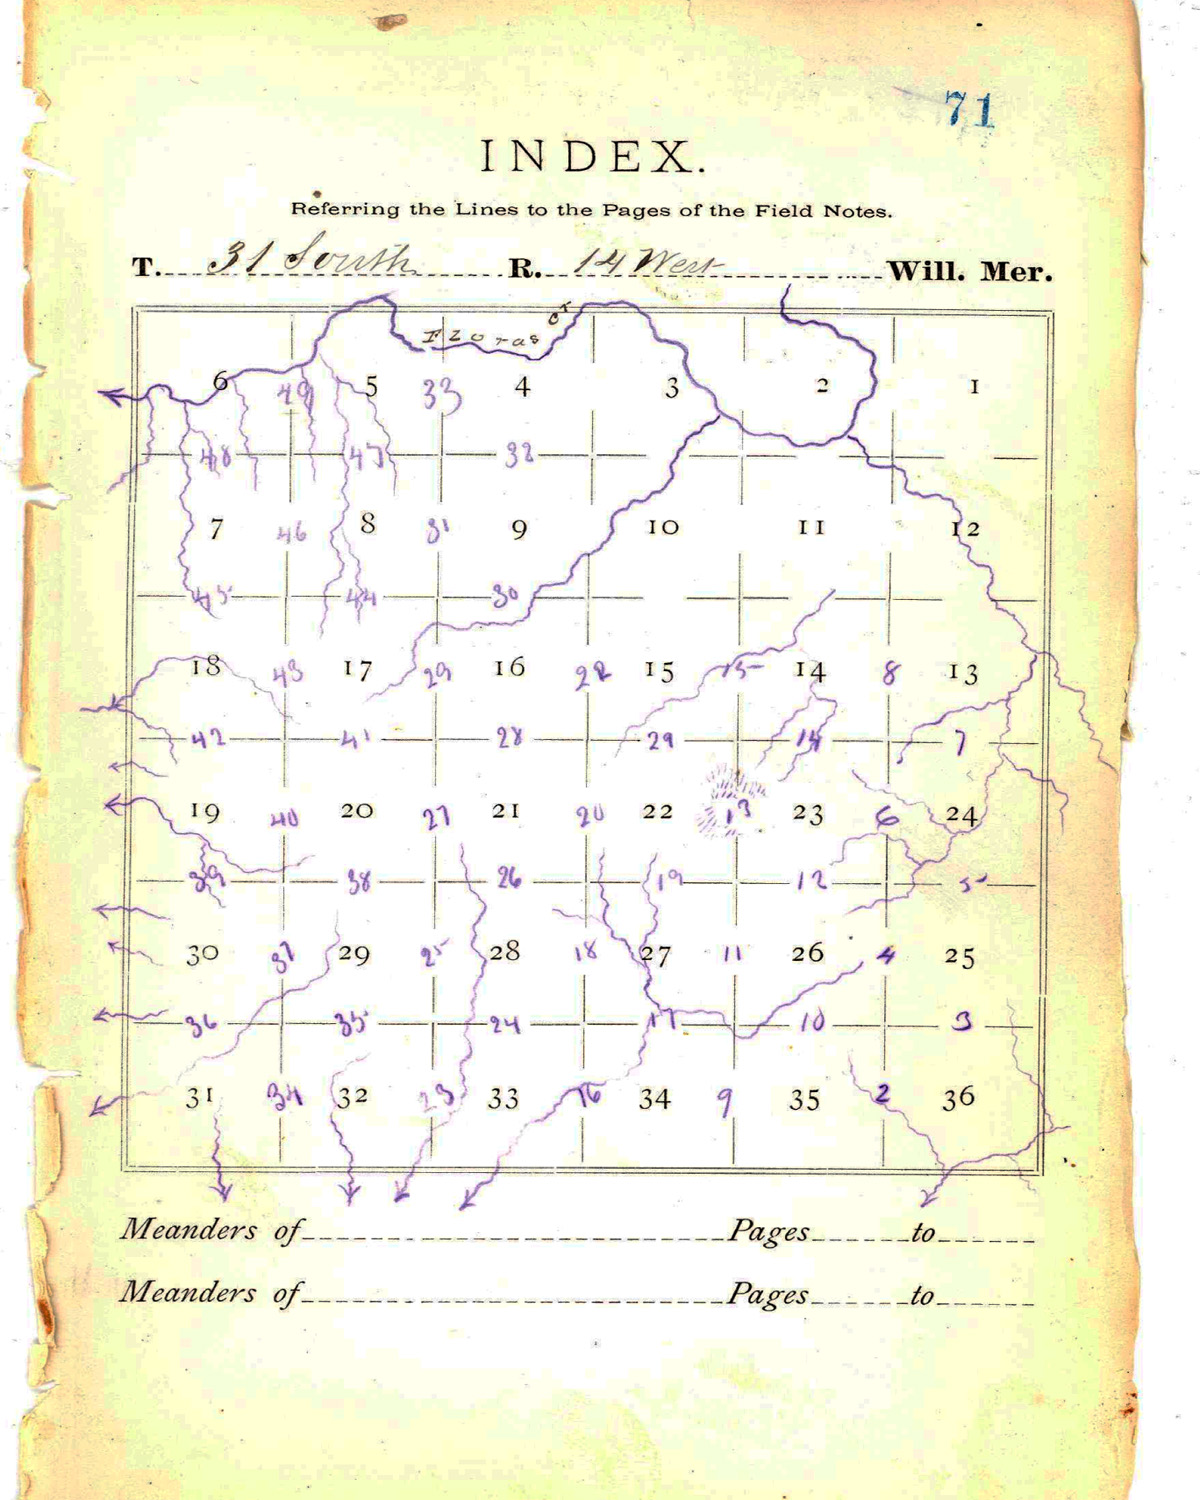 71
INDEX.
Referring the Lines to the Pages of the Field Notes.
T. 31 South R. 14 West Will. Mer.
Floras Cr
6 49 5 33 4 3 2 1
48 47 32
7 46 8 31 9 10 11 12
45 44 30
18 43 17 29 16 22 15 15 14 8 13
42 41 28 29 14 7
19 40 20 27 21 20 22 13 23 6 24
39 38 26 19 12 5
30 37 29 25 28 18 27 11 26 4 25
36 35 24 17 10 3
31 34 32 23 33 16 34 9 35 2 36
Meanders of Pages to
Meanders of Pages to